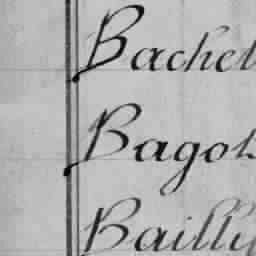 Bachel
Bagot
Bailly